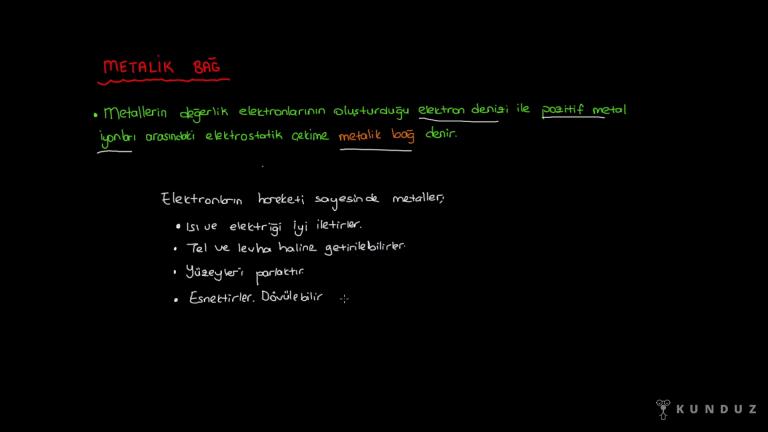 METALİK BAĞ
• Metallerin değerlik elektronlarının oluşturduğu elektron denizi ile pozitif metal
iyonları arasındaki elektrostatik çekime metalik bağ denir.
Elektronların hareketi sayesinde metaller;
• Isı ve elektriği iyi iletirler.
• Tel ve levha haline getirilebilirler.
• Yüzeyleri parlaktır.
• Esnektirler. Dövülebilir
KUNDUZ